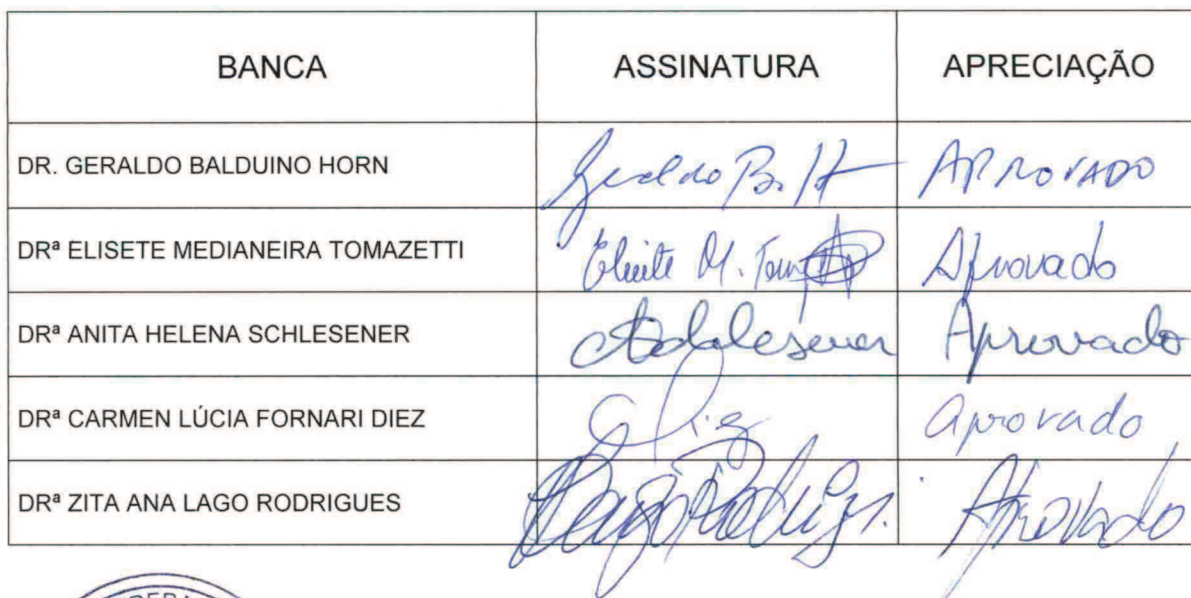 BANCA ASSINATURA APRECIAÇÃO
DR. GERALDO BALDUINO HORN Geraldo B. H APROVADO
DRª ELISETE MEDIANEIRA TOMAZETTI Elisete M. Aprovado
DRª ANITA HELENA SCHLESENER Aprovado
DRª CARMEN LÚCIA FORNARI DIEZ aprovado
DRª ZITA ANA LAGO RODRIGUES Aprovado